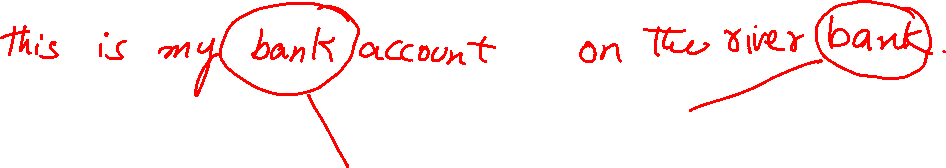 this is my bank account on the river bank.